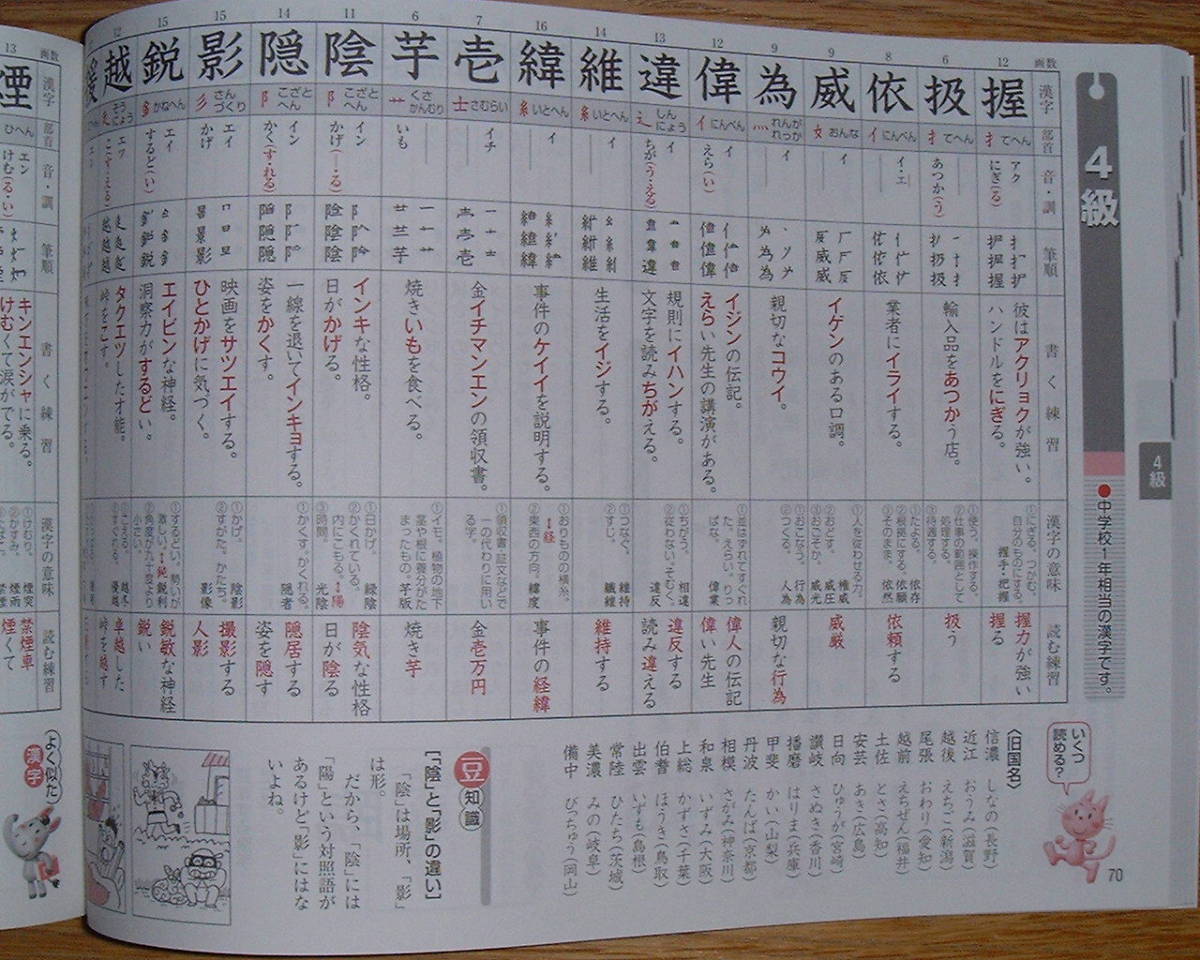 4級
●中学校1年相当の漢字です。
4級
画数
漢字
部首
音・訓
筆順
書く練習
漢字の意味
読む練習
12
握
扌てへん
アク
にぎ(る)
彼はアクリョクが強い。
ハンドルをにぎる。
①にぎる。つかむ。
自分のものにする。
握手・把握
握力が強い
握る
6
扱
扌てへん
あつか(う)
輸入品をあつかう店。
①使う。操作する。
②仕事の範囲として
処理する。
③待遇する。
扱う
8
依
亻にんべん
イ・エ
業者にイライする。
①たよる。依存
②根拠にする。依願
③そのまま。依然
依頼する
9
威
女おんな
イ
イゲンのある口調。
①人を従わせる力。
権威
②おどす。威圧
③おごそか。威光
威厳
9
為
灬れんが
れっか
イ
親切なコウイ。
①おこなう。行為
②つくる。人為
親切な行為
12
偉
亻にんべん
イ
えら(い)
イジンの伝記。
えらい先生の講演がある。
①並はずれてすぐれ
た。えらい。りっ
ぱな。偉業
偉人の伝記
偉い先生
13
違
辶しん
にょう
イ
ちが(う・える)
規則にイハンする。
文字を読みちがえる。
①ちがう。相違
②従わない。そむく。
違反
違反する
読み違える
14
維
糸いとへん
イ
生活をイジする。
①つなぐ。維持
②すじ。繊維
維持する
16
緯
糸いとへん
イ
事件のケイイを説明する。
①おりものの横糸。
↕経
②東西の方向。緯度
事件の経緯
7
壱
士さむらい
イチ
金イチマンエンの領収書。
①領収書・証文などで
一の代わりに用い
る字。
金壱万円
6
芋
艹くさ
かんむり
いも
焼きいもを食べる。
①イモ。植物の地下
茎や根に養分がた
まったもの。芋版
焼き芋
11
陰
阝こざと
へん
イン
かげ(―・る)
インキな性格。
日がかげる。
①日かげ。緑陰
②かくれている。
内にこもる。↕陽
③時間。光陰
陰気な性格
日が陰る
14
隠
阝こざと
へん
イン
かく(す・れる)
一線を退いてインキョする。
姿をかくす。
①かくす。かくれる。
隠者
隠居する
姿を隠す
15
影
彡さん
づくり
エイ
かげ
映画をサツエイする。
ひとかげに気づく。
①かげ。陰影
②すがた。かたち。
影像
撮影する
人影
15
鋭
金かねへん
エイ
するど(い)
エイビンな神経。
洞察力がするどい。
①するどい。勢いが
激しい。↕鈍 鋭利
②角度が九十度より
小さい。
鋭敏な神経
鋭い
12
越
そう
にょう
エツ
こ(す・える)
タクエツした才能。
峠をこす。
①こえる。越冬
②すぐれる。優越
卓越した
峠を越す
いくつ
読める？
〈旧国名〉
信濃 しなの(長野)
近江 おうみ(滋賀)
越後 えちご(新潟)
尾張 おわり(愛知)
越前 えちぜん(福井)
土佐 とさ(高知)
安芸 あき(広島)
日向 ひゅうが(宮崎)
讃岐 さぬき(香川)
播磨 はりま(兵庫)
甲斐 かい(山梨)
丹波 たんば(京都)
相模 さがみ(神奈川)
和泉 いずみ(大阪)
上総 かずさ(千葉)
伯耆 ほうき(鳥取)
出雲 いずも(島根)
常陸 ひたち(茨城)
美濃 みの(岐阜)
備中 びっちゅう(岡山)
豆知識
[「陰」と「影」の違い]
「陰」は場所、「影」
は形。
だから、「陰」には
「陽」という対照語が
あるけど「影」にはな
いよね。
70
画数
漢字
部首
音・訓
筆順
書く練習
漢字の意味
読む練習
13
煙
ひへん
エン
けむ(る・い)
キンエンシャに乗る。
けむくて涙がでる。
①けむり。煙突
②かすみ。煙雨
禁煙車
煙くて
よく似た
漢字